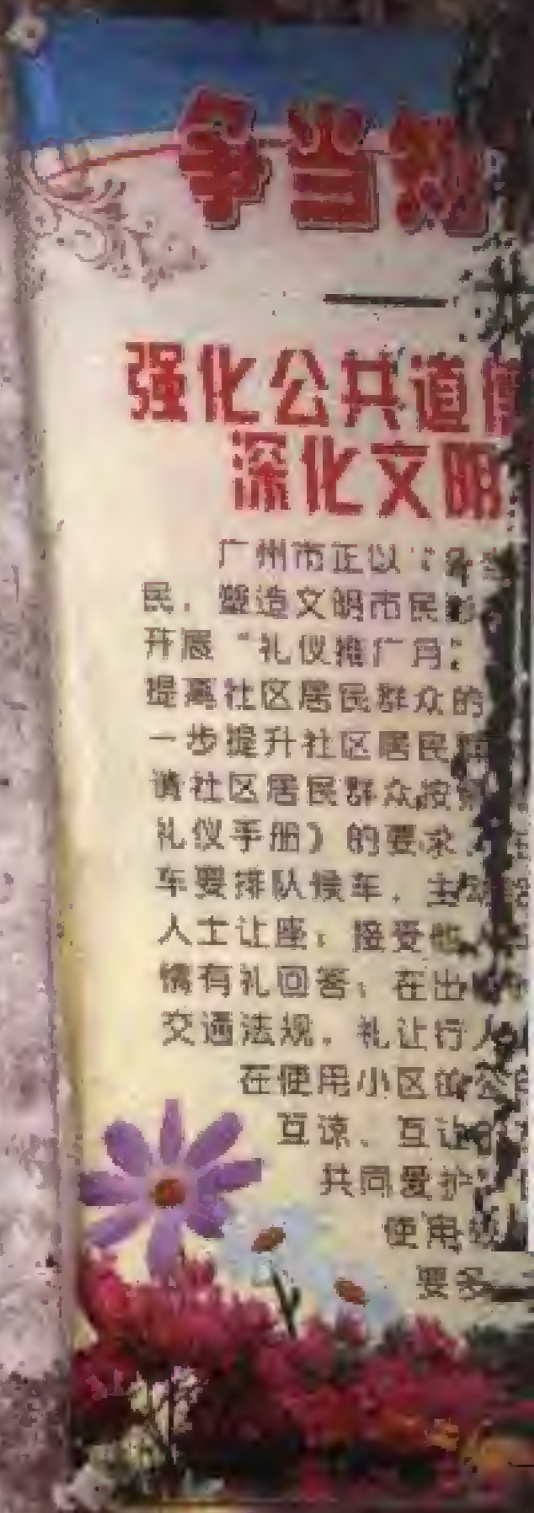 争当
强化公共道德
深化文明
广州市正以“争当
民,塑造文明市民
开展“礼仪推广月”
提高社区居民群众的
一步提升社区居民
请社区居民群众按
礼仪手册》的要求,
车要排队候车,主动
人士让座;接受他人
情有礼回答;在出
交通法规,礼让行人
在使用小区的公
互谅、互让的
共同爱护
使用
要多